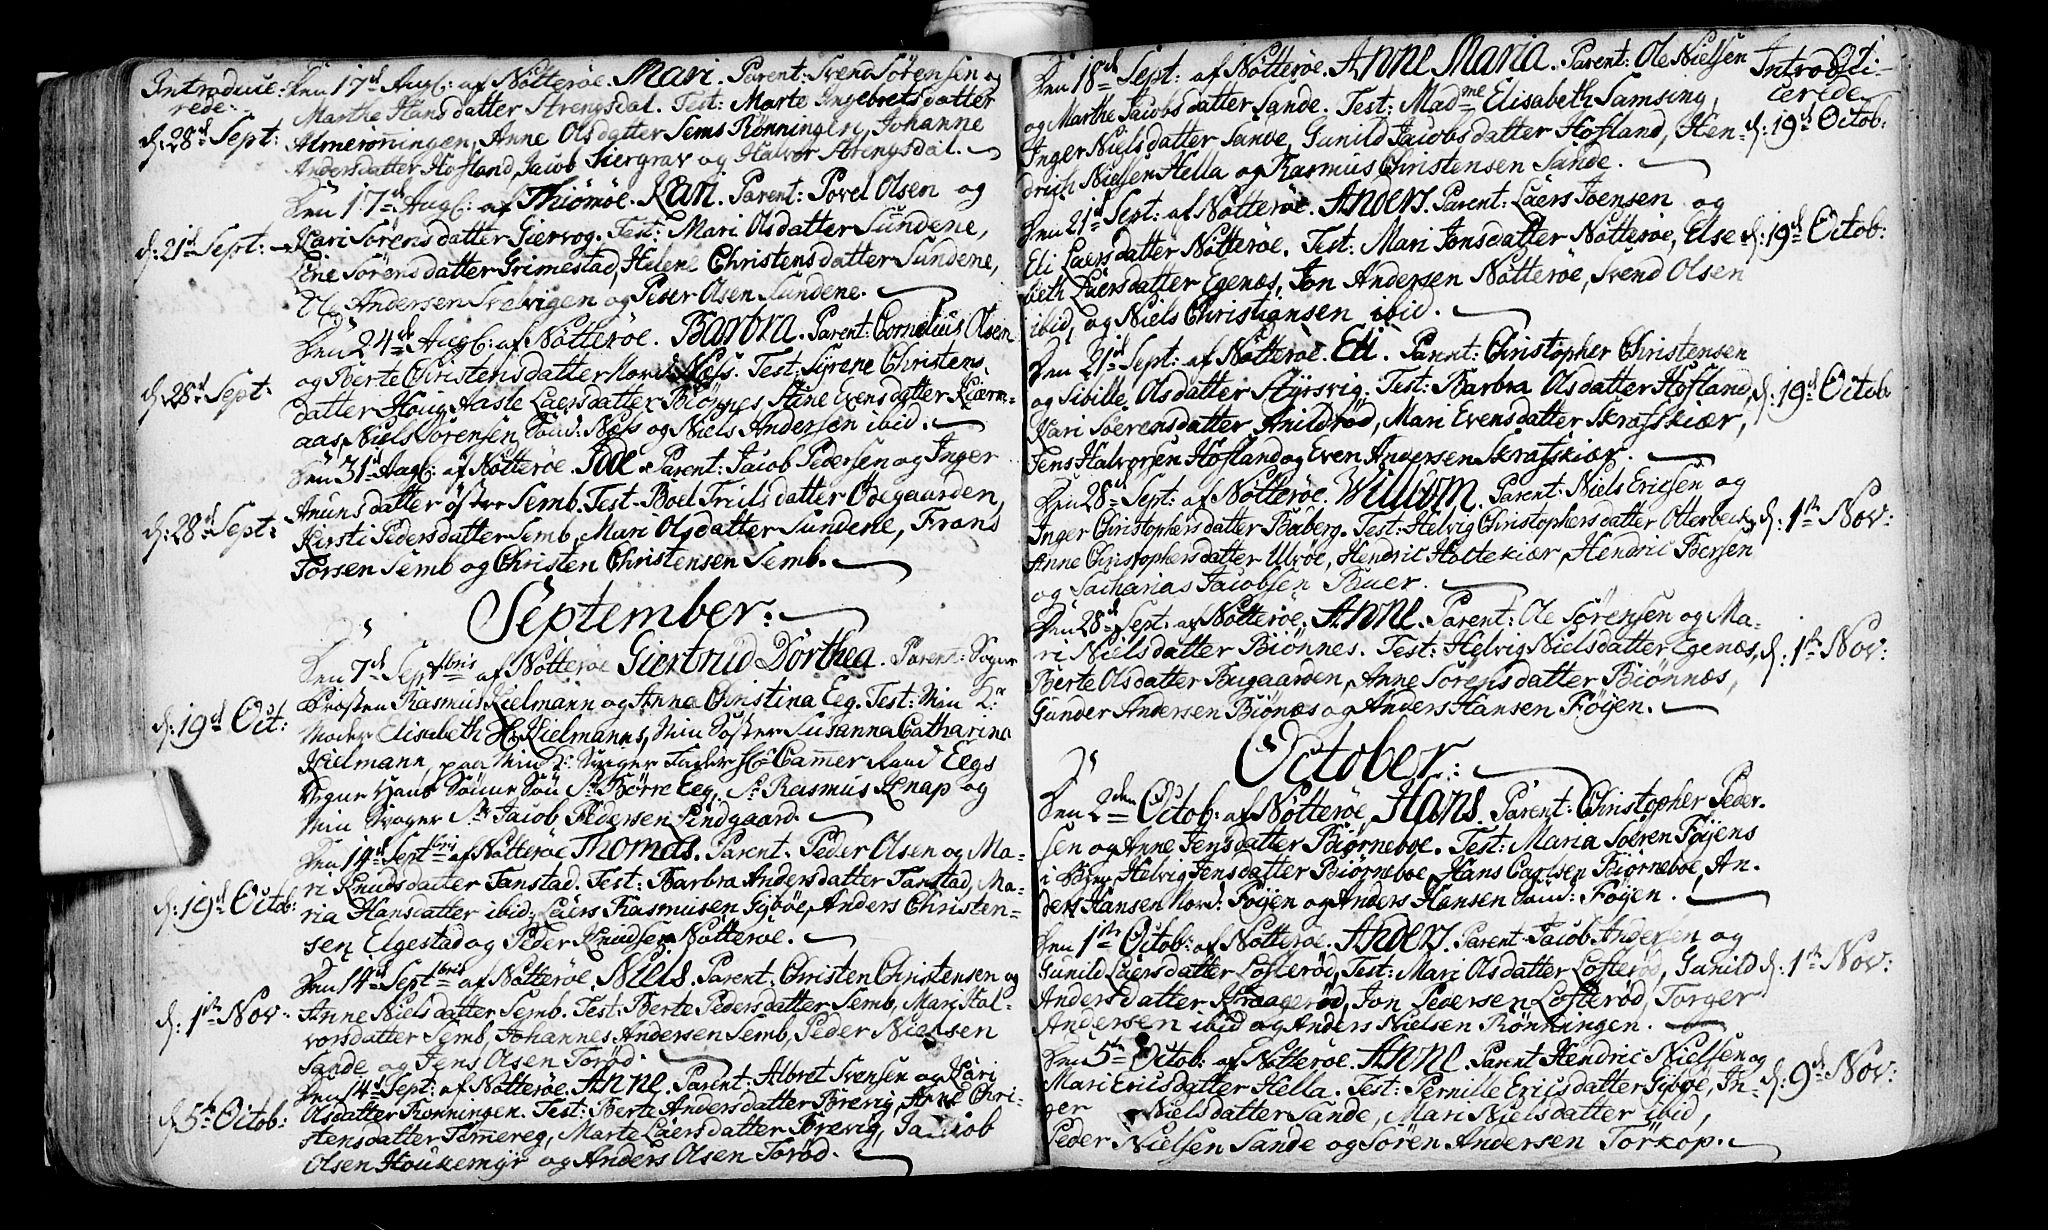 Introduce-
rede:
Den 17d Aug: af Nøtterøe. Mari. Parent: Svend Sørensen og
Marthe Hansdatter Strengsdal. Test: Marte Ingebretsdatter
d: 28d Sept: Almerøningen, Anne Olsdatter Sems Rønningen, Johanne
Andersdatter Hofland, Jacob Kiergrav og Halvor Strengsdal.
Den 17d Aug: af Thiømøe. Kari. Parent: Povel Olsen og
d: 21d Sept: Kari Sørensdatter Giervog. Test: Mari Olsdatter Sundene,
Lene Sørensdatter Grimestad, Helene Christensdatter Sundene,
Ole Andersen Svelvigen og Peter Olsen Sundene.
Den 24d Aug: af Nøtterøe. Barbra. Parent: Cornelius Olsen
og Berte Christensdatter Nord: Næss. Test: Syrene Christens-
d: 28d Sept: datter Houg, Aasle Laersdatter Biønnes, Stine Evensdatter Kierm-
aas, Niels Sørensen Sönd: Næss og Niels Andersen ibid.
Den 31d Aug: af Nøtterøe. Idde. Parent: Jacob Pedersen og Inger
Anunsdatter øster Semb. Test: Boel Trulsdatter Ødegaarden,
d: 28d Sept: Kirsti Pedersdatter Semb, Mari Olsdatter Sundene, Frans
Torsen Semb og Christen Christensen Semb.
September:
Den 7d Septbris af Nøtterøe Giertrud Dorthea. Parent: Sogne
Prosten Rasmus Kielmann og Anna Christina Eeg. Test: Min K:
d: 19d Oct: Moder Elisabeth Hr Kielmanns, Min Søster Susanna Catharina
Kielmann, paa Min K: Svigerfader Hr Cammer Raad Eegs
Vegne Hans Sønne Søn Sr Børre Eeg, Sr Rasmus Knap og
Min Svoger Sr Jacob Pedersen Lindgaard.
Den 14d Septbri af Nøtterøe Thomas. Parent: Peder Olsen og Ma-
ri Knudsdatter Tanstad. Test: Barbra Andersdatter Tanstad, Ma-
d: 19d Octob: ria Hansdatter ibid: Laers Rasmusen Gipøe, Anders Christen-
sen Elgestad og Peder Knudsen Nøtterøe.
Den 14d Septbris af Nøtterøe. Niels. Parent: Christen Christensen og
d: 1st Nov: Anne Nielsdatter Semb. Test: Berte Pedersdatter Semb, Mari Hal-
vorsdatter Semb, Johannes Andersen Semb, Peder Nielsen
Sande og Jens Olsen Torød.
Den 14d Sept: af Nøtterøe. Anne. Parent: Albret Svensen og Kari
d: 5th Octob: Olsdatter Rønningen. Test: Berte Andersdatter Brevig, Anne Chri-
stensdatter Temereg, Marte Laersdatter Brevig, Jacob
Olsen Houkemyr og Anders Olsen Torød.
91.
Introdu-
cerede
Den 18d Sept: af Nøtterøe. Anne Maria. Parent: Ole Nielsen
og Marthe Jacobsdatter Sande. Test: Madme Elisabeth Samsing,
Inger Nielsdatter Sande, Gunild Jacobsdatter Hofland, Hen- d: 19d Octob:
drich Nielsen Hella og Rasmus Christensen Sande.
Den 21d Sept: af Nøtterøe. Anders. Parent: Laers Joensen og
Eli Laersdatter Nøtterøe. Test: Mari Jonsdatter Nøtterøe, Else d: 19d Octob:
beth Laersdatter Egenæs, Jon Andersen Nøtterøe, Svend Olsen
ibid, og Niels Christiansen ibid.
Den 21d Sept: af Nøtterøe. Eli. Parent: Christopher Christensen
og Sibille Olsdatter Hyrsvig. Test: Barbra Olsdatter Hofland, d: 19d Octob
Kari Soerensdatter Anildrød, Mari Evensdatter Skrafskiær,
Jens Halvorsen Hofland og Even Andersen Skrafskiær.
Den 28d Sept: af Nøtterøe. Willum. Parent: Niels Ericsen og
Inger Christophersdatter Buberg. Test: Helvig Christophersdatter Otterbeck, d: 1st Nov:
Anne Christophersdatter Ulvøe, Hendric Holtekiær, Hendric Bersen
og Sacharias Jacobsen Buer.
Den 28d Sept: af Nøtterøe. Anne. Parent: Ole Sørensen og Ma-
ri Nielsdatter Biønnes. Test: Helvig Nielsdatter Egenæs, d: 1st Nov:
Berte Olsdatter Bugaarden, Anne Sørensdatter Biønnæs,
Gunder Andersen Biønæs og Anders Hansen Føyen.
October:
Den 2den Octob: af Nøtterøe, Hans. Parent: Christopher Peder-
sen og Anne Jensdatter Biørneboe. Test: Maria Soeren Føyens
i Byen, Helvig Jensdatter Biørneboe, Hans Carlsen Biørneboe, An-
ders Hansen Nord: Føyen og Anders Hansen Sönd: Føyen.
Den 1st Octob: af Nøtterøe. Anders. Parent: Jacob Andersen og
Gunild Laersdatter Lofterød, Test: Mari Olsdatter Lofterød, Gunild d: 1st Nov:
Andersdatter Kraagerød, Jon Pedersen Lofterød, Torger
Andersen ibid og Anders Nielsen Rønningen.
Den 5th Octob: af Nøtterøe. Anne. Parent Hendric Nielsen og
Mari Ericsdatter Hella. Test: Pernille Ericsdatter Gipøe, In- d: 9d Nov:
ger Nielsdatter Sande, Mari Nielsdatter ibid,
Peder Nielsen Sande og Søren Andersen Torkop.